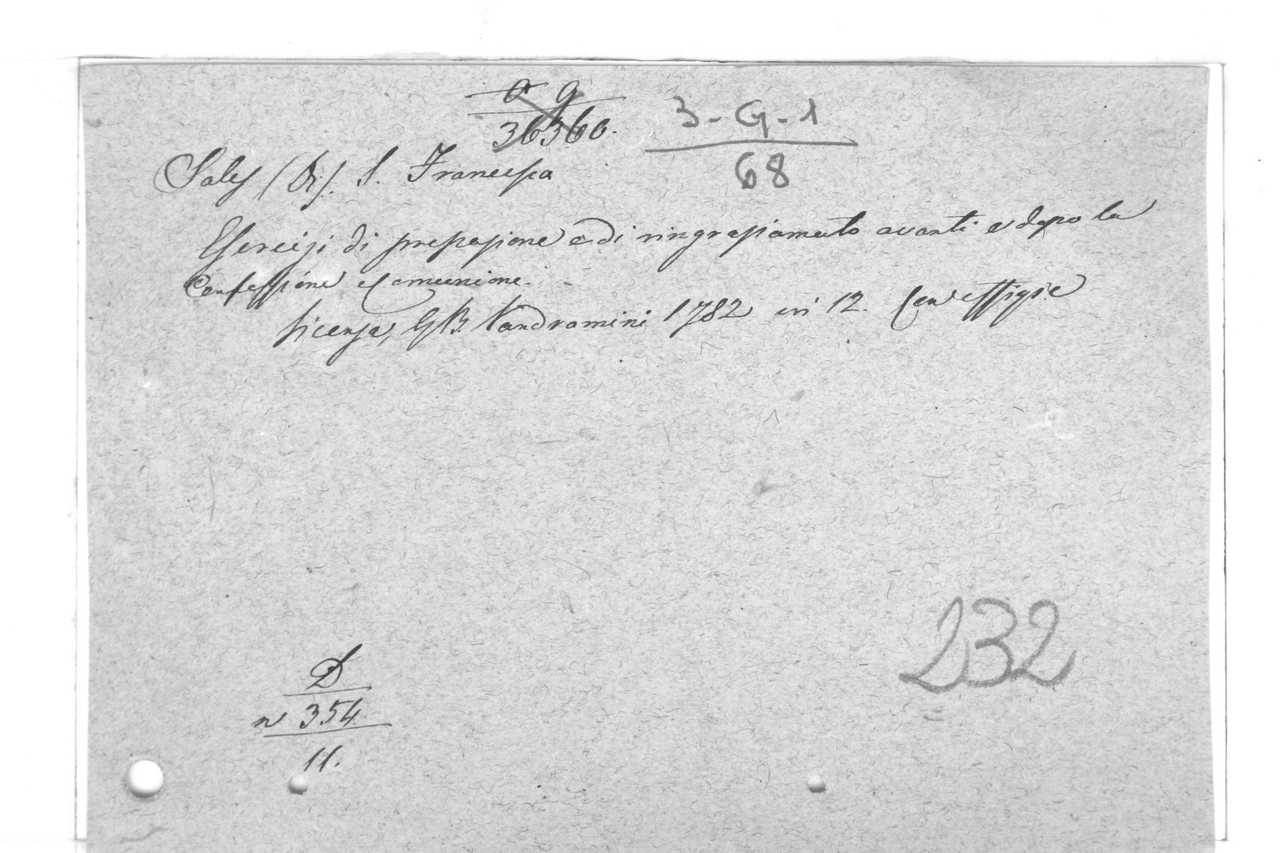 o g
36360.
3-G-1
68
Sales (Di). S. Francesco
Esercizj di prepazione e di ringraziamento avanti e dopo la
Confessione e Comunione.
Vicenza, GB. Vendramini 1782 in 12. Con effigie
232
D
n 354
11.